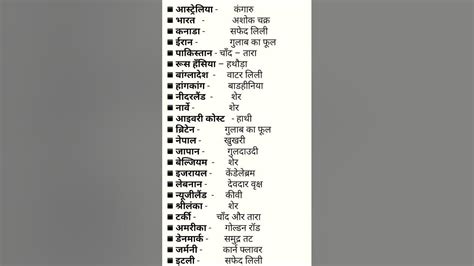 ▪ आस्ट्रेलिया - कंगारु
▪ भारत - अशोक चक्र
▪ कनाडा - सफेद लिली
▪ ईरान - गुलाब का फूल
▪ पाकिस्तान - चाँद – तारा
▪ रूस हँसिया – हथौड़ा
▪ बांग्लादेश - वाटर लिली
▪ हांगकांग - बाडहीनिया
▪ नीदरलैंड - शेर
▪ नार्वे - शेर
▪ आइवरी कोस्ट - हाथी
▪ ब्रिटेन - गुलाब का फूल
▪ नेपाल - खुखरी
▪ जापान - गुलदाउदी
▪ बेल्जियम - शेर
▪ इजरायल - केंडेलेब्रम
▪ लेबनान - देवदार वृक्ष
▪ न्यूजीलैंड - कीवी
▪ श्रीलंका - शेर
▪ टर्की - चाँद और तारा
▪ अमरीका - गोल्डन रॉड
▪ डेनमार्क - समुद्र तट
▪ जर्मनी - काने फ्लावर
▪ इटली - सफेद लिली